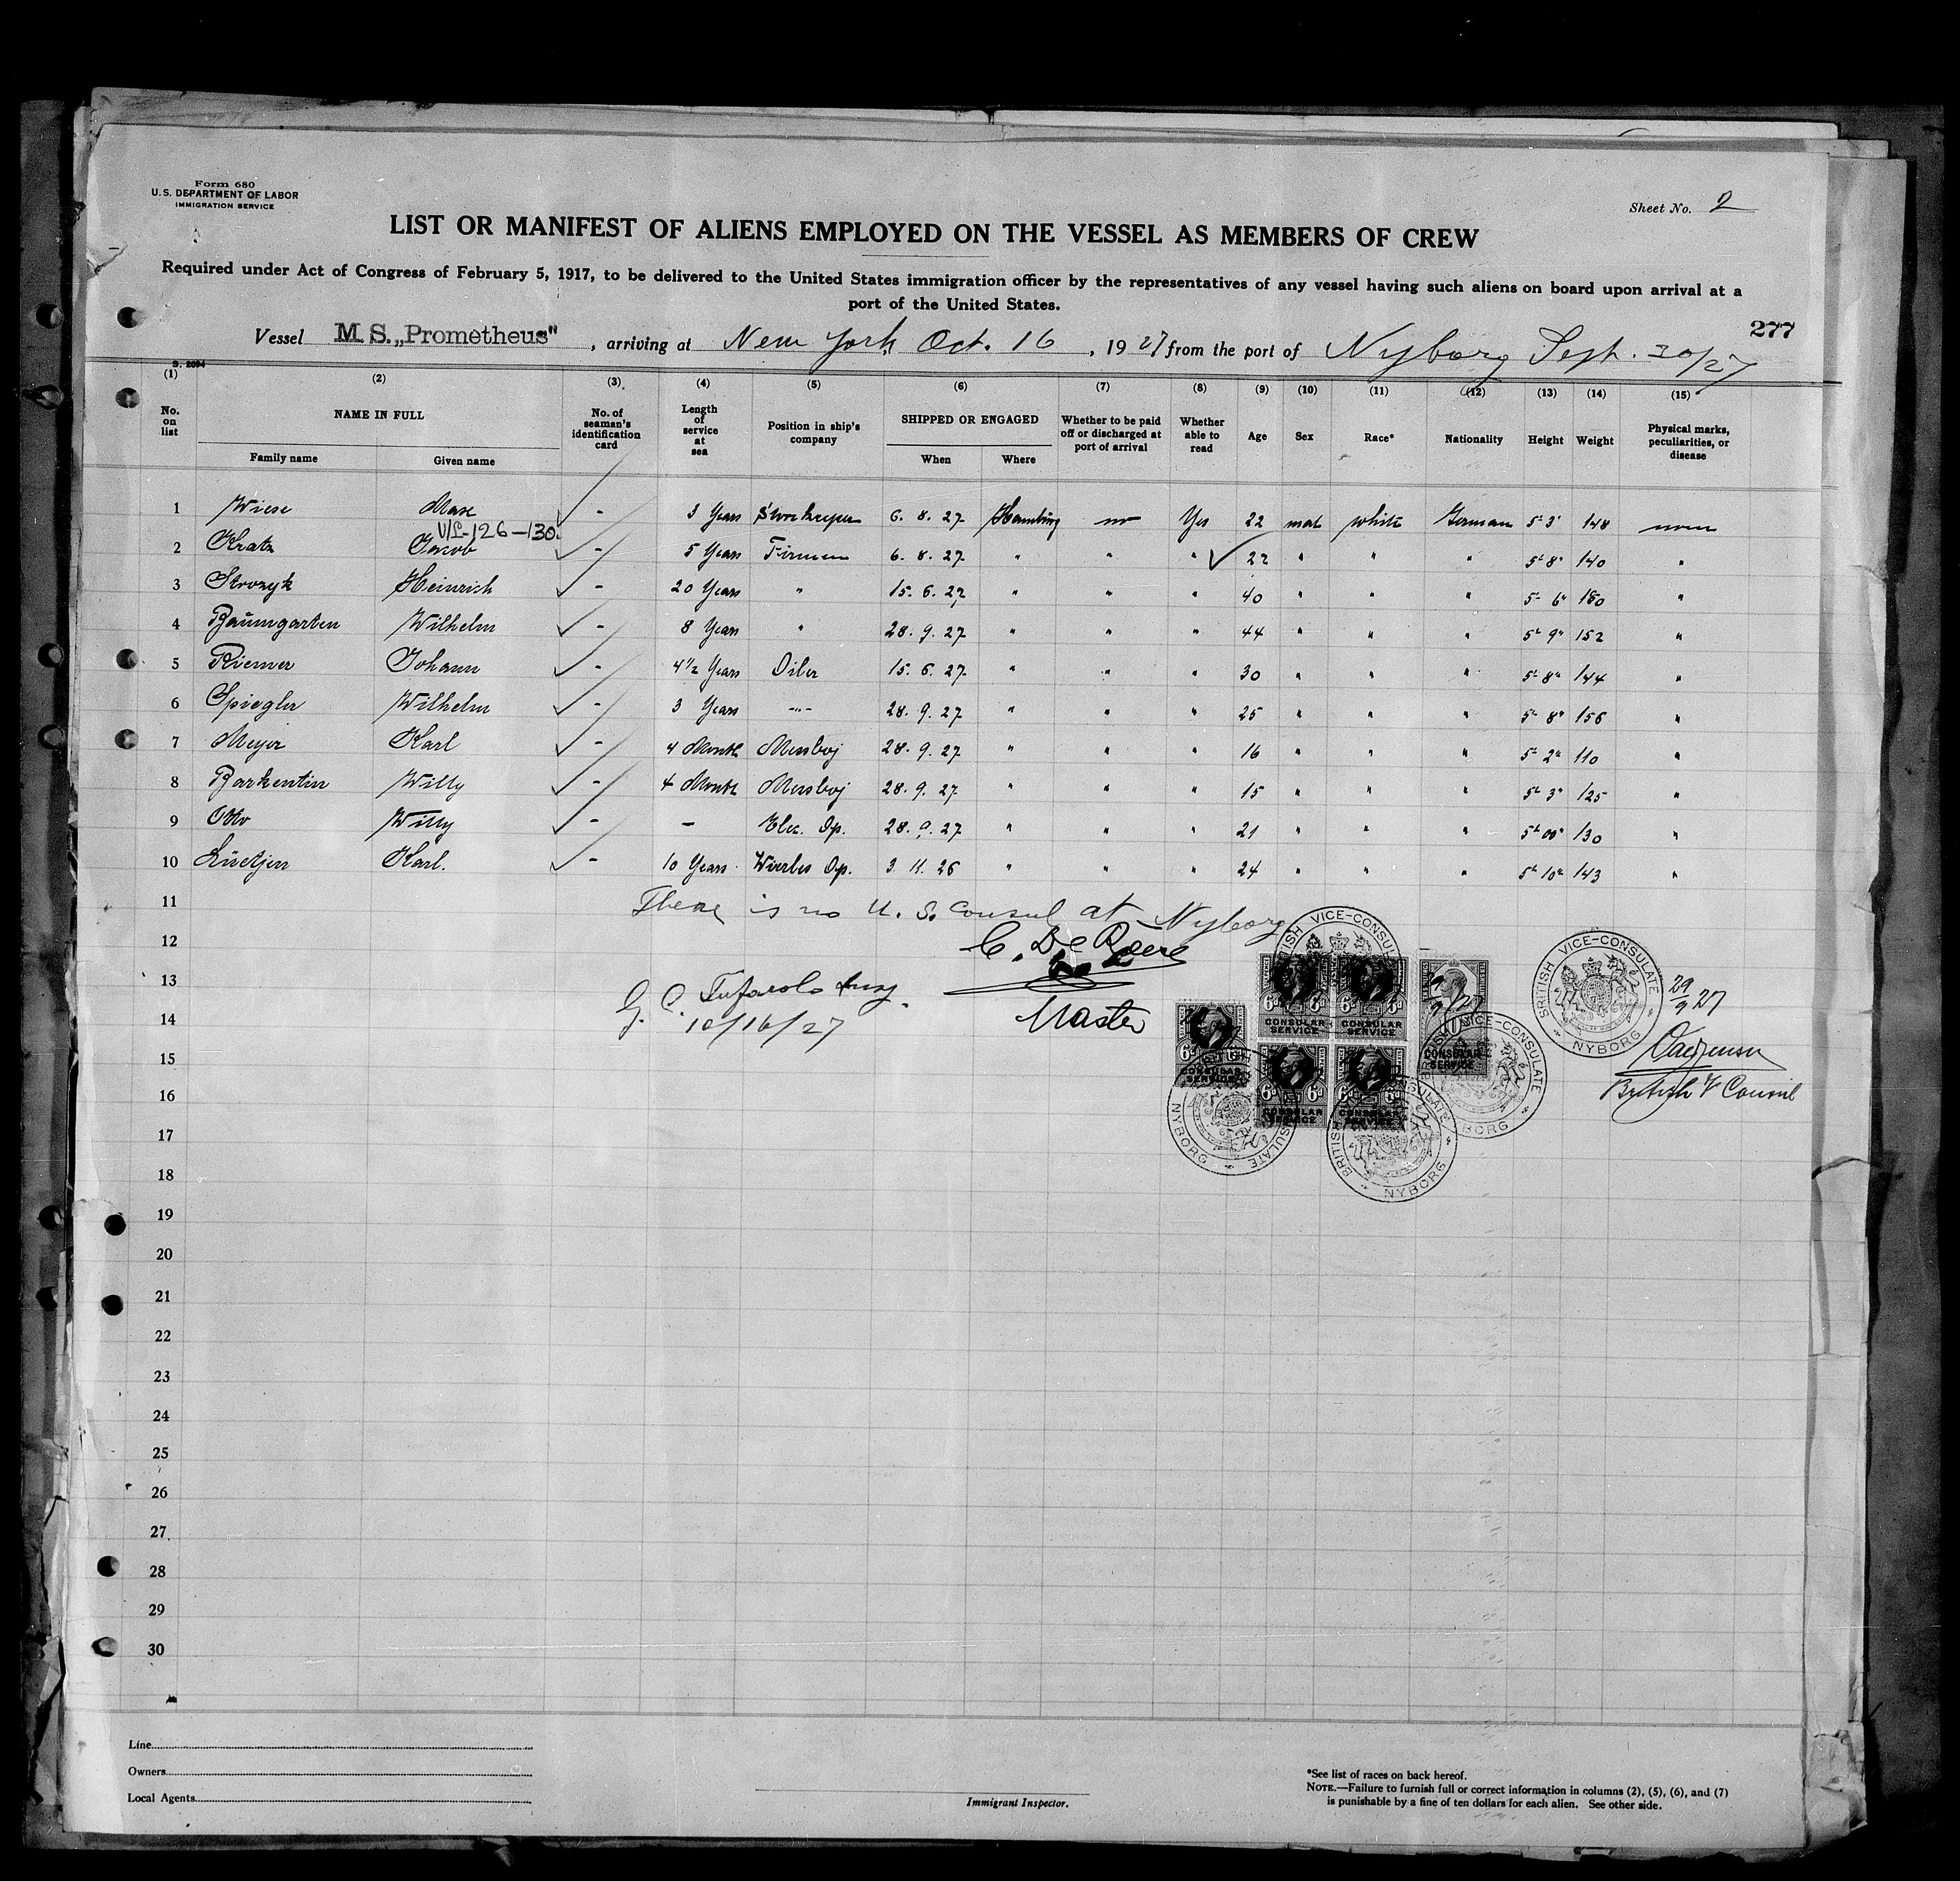 Form 680
U.S. DEPARTMENT OF LABOR
IMMIGRATION SERVICE
Sheet No. 2
LIST OR MANIFEST OF ALIENS EMPLOYED ON THE VESSEL AS MEMBERS OF CREW
Required under Act of Congress of February 5, 1917, to be delivered to the United States immigration officer by the representatives of any vessel having such aliens on board upon arrival at a
port of the United States.
277
Vessel M.S. „Prometheus" , arriving at New York, Oct. 16 , 1927 from the port of Nyborg Sept. 30/27
S. 2094
(1) (2) (3) (4) (5) (6) (7) (8) (9) (10) (11) (12) (13) (14) (15)
No. on list NAME IN FULL No. of seaman's identification card Length of service at sea Position in ship's company SHIPPED OR ENGAGED Whether to be paid off or discharged at port of arrival Whether able to read Age Sex Race* Nationality Height Weight Physical marks, peculiarities, or disease
Family name Given name When Where
1 Wiese Max - 3 Years Storekeeper 6. 8. 27. Hamburg no Yes 22 mal white German 5' 3" 148 none
V/L-126-130.
2 Kratz Jacob - 5 Years Firemen 6. 8. 27 " " " 22 " " " 5' 8" 140 "
3 Strozyk Heinrich - 20 Years " 15. 6. 27. " " " 40 " " " 5' 6" 180 "
4 Baumgarten Wilhelm - 8 Years " 28. 9. 27. " " " 44 " " " 5' 9" 152 "
5 Riemer Johann - 4½ Years Oiler 15. 6. 27. " " " 30 " " " 5' 8" 144 "
6 Spiegler Wilhelm - 3 Years -"- 28. 9. 27. " " " 25 " " " 5' 8" 156 "
7 Meyer Karl - 4 Month Messboj 28. 9. 27. " " " 16 " " " 5' 2" 110 "
8 Barkentin Willy - 4 Month Messboj 28. 9. 27. " " " 15 " " " 5' 3" 125 "
9 Otto Willy - - Elec. Op. 28. 9. 27 " " " 21 " " " 5' 00" 130 "
10 Lüetjen Karl. - 10 Years Wirrles Op. 3. 11. 26 " " " 24 " " " 5' 10" 143 "
11 There is no U. S. Consul at Nyborg
12 C. De
13 G. C.
14 10/16/27 Master
BRITISH VICE-CONSULATE NYBORG
29/9 27
British V Consul
6d 6d CONSULAR SERVICE
6d 6d CONSULAR SERVICE
CONSULAR SERVICE
6d CONSULAR SERVICE
6d 6d CONSULAR SERVICE
6d 6d CONSULAR SERVICE
BRITISH VICE-CONSULATE NYBORG
15
16
17
18
19
20
21
22
23
24
25
26
27
28
29
30
Line
Owners
Local Agents
Immigrant Inspector.
*See list of races on back hereof.
NOTE.—Failure to furnish full or correct information in columns (2), (5), (6), and (7)
is punishable by a fine of ten dollars for each alien. See other side.